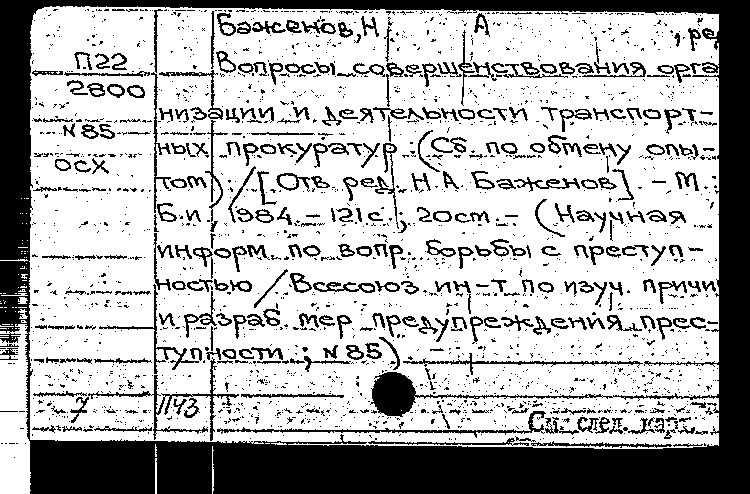 Баженов, Н А , ред
П22 Вопросы совершенствования орга
2800
низации и деятельности транспорт-
N 85
ных прокуратур : (Сб. по обмену опы-
ОСХ
том) : / [Отв. ред. Н.А. Баженов]. - М. :
Б.и., 1984. - 121 с. ; 20 ст. - (Научная
информ. по вопр. борьбы с преступ-
ностью / Всесоюз. ин-т по изуч. причи
и разраб. мер предупреждения прес-
тупности ; N 85). -
7
См. след. карт.